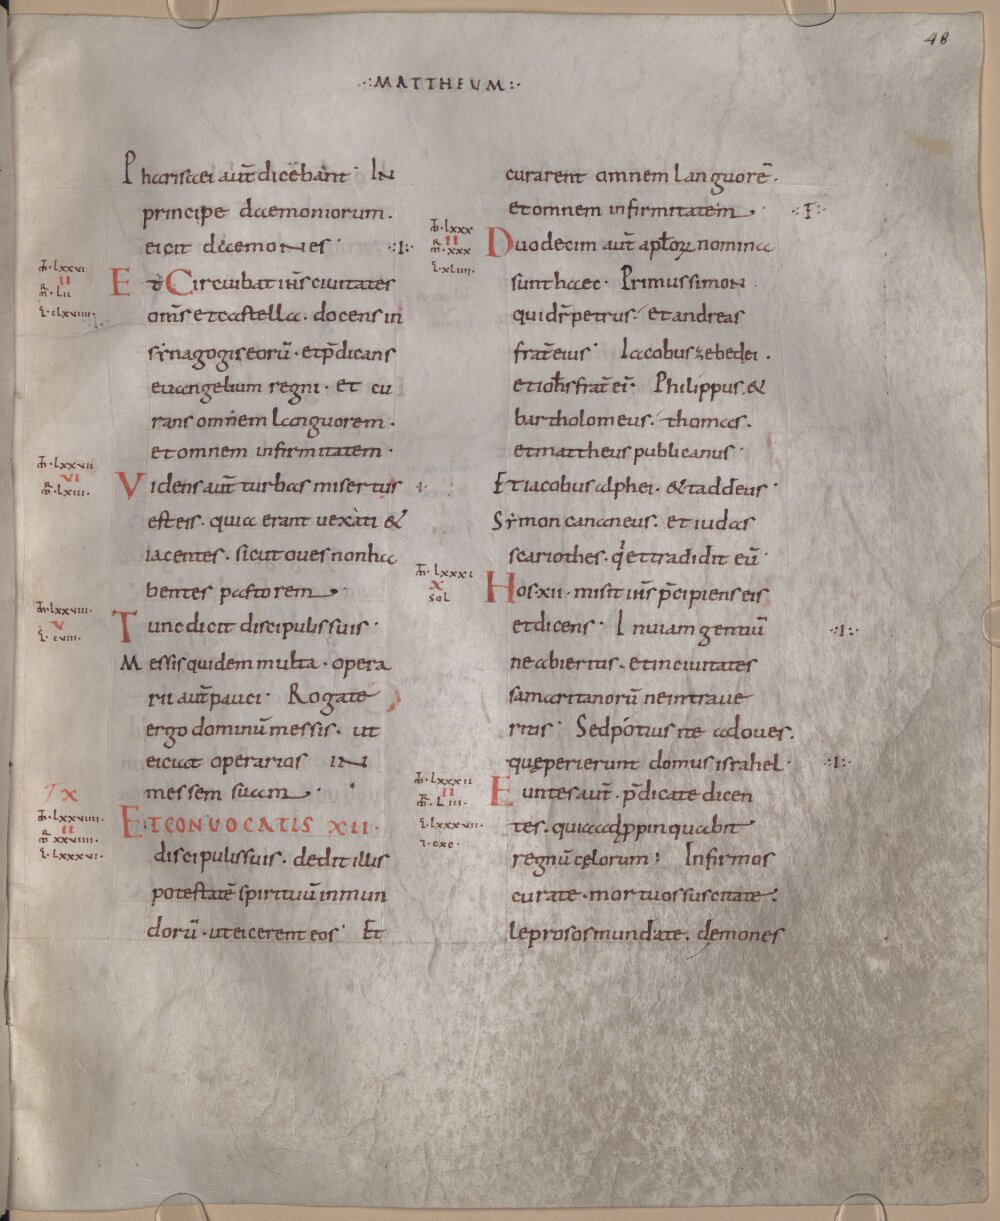 48
·:MATTHEUM:·
Pharisaei aut̄ dicebant· IN
principe daemoniorum.
eicit daemones· ·:I·
M̄·lxxvi
II
m̄·lii
L̄·clxviiii·
Et Circuibat ih̄s ciuitates
om̄s et castella· docens in
synagogis eorū· et p̄dicans
euangelium regni· et cu
rans omnem languorem·
et omnem infirmitatem·
M̄·lxxvii
VI
m̄·lxiii·
Videns aut̄ turbas misertus
est eis· quia erant uexati &
iacentes· sicut oues non ha
bentes pastorem·
M̄·lxxviii·
V
L̄·cviii·
Tunc dicit discipulis suis·
Messis quidem multa· opera
rii aut̄ pauci· Rogate
ergo dominū messis· ut
eiciat operarios IN
messem suam·
M̄·lxxviiii·
II
m̄ xxviiii·
L̄·lxxxvi·
ET CONUOCATIS XII·
discipulis suis· dedit illis
potestatē spirituū inmun
dorū· ut eicerent eos· Et
curarent omnem languorē·
et omnem infirmitatem· ·:I:·
M̄·lxxx
II
m̄·xxx
L̄·xliiii·
Duodecim aut̄ aptoꝝ nomina
sunt haec· Primus simon·
qui dr̄ petrus· et andreas
frat̄ eius· Iacobus zebedei·
et ioh̄s frat̄ ei᷒· Philippus· &
bartholomeus· thomas·
et mattheus publicanus·
Et iacobus alphei· & taddeus·
Symon cananeus· et iudas
scariothes· q̇ et tradidit eū·
M̄·lxxxi
X
sol
Hos·xii· misit ih̄s p̄cipiens eis
et dicens· In uiam gentiū ·:I:·
ne abieritis· et in ciuitates
samaritanorū ne intraue
ritis· Sed potius ite ad oues·
quę perierunt domus israhel· ·:I:·
M̄·lxxxii
II
m̄·Liii·
L̄·lxxxvii·
ı·cxc·
Euntes aut̄· p̄dicate dicen
tes· quia adp̄pinquabit
regnū cęlorum; Infirmos
curate· mortuos suscitate·
leprosos mundate· dęmones